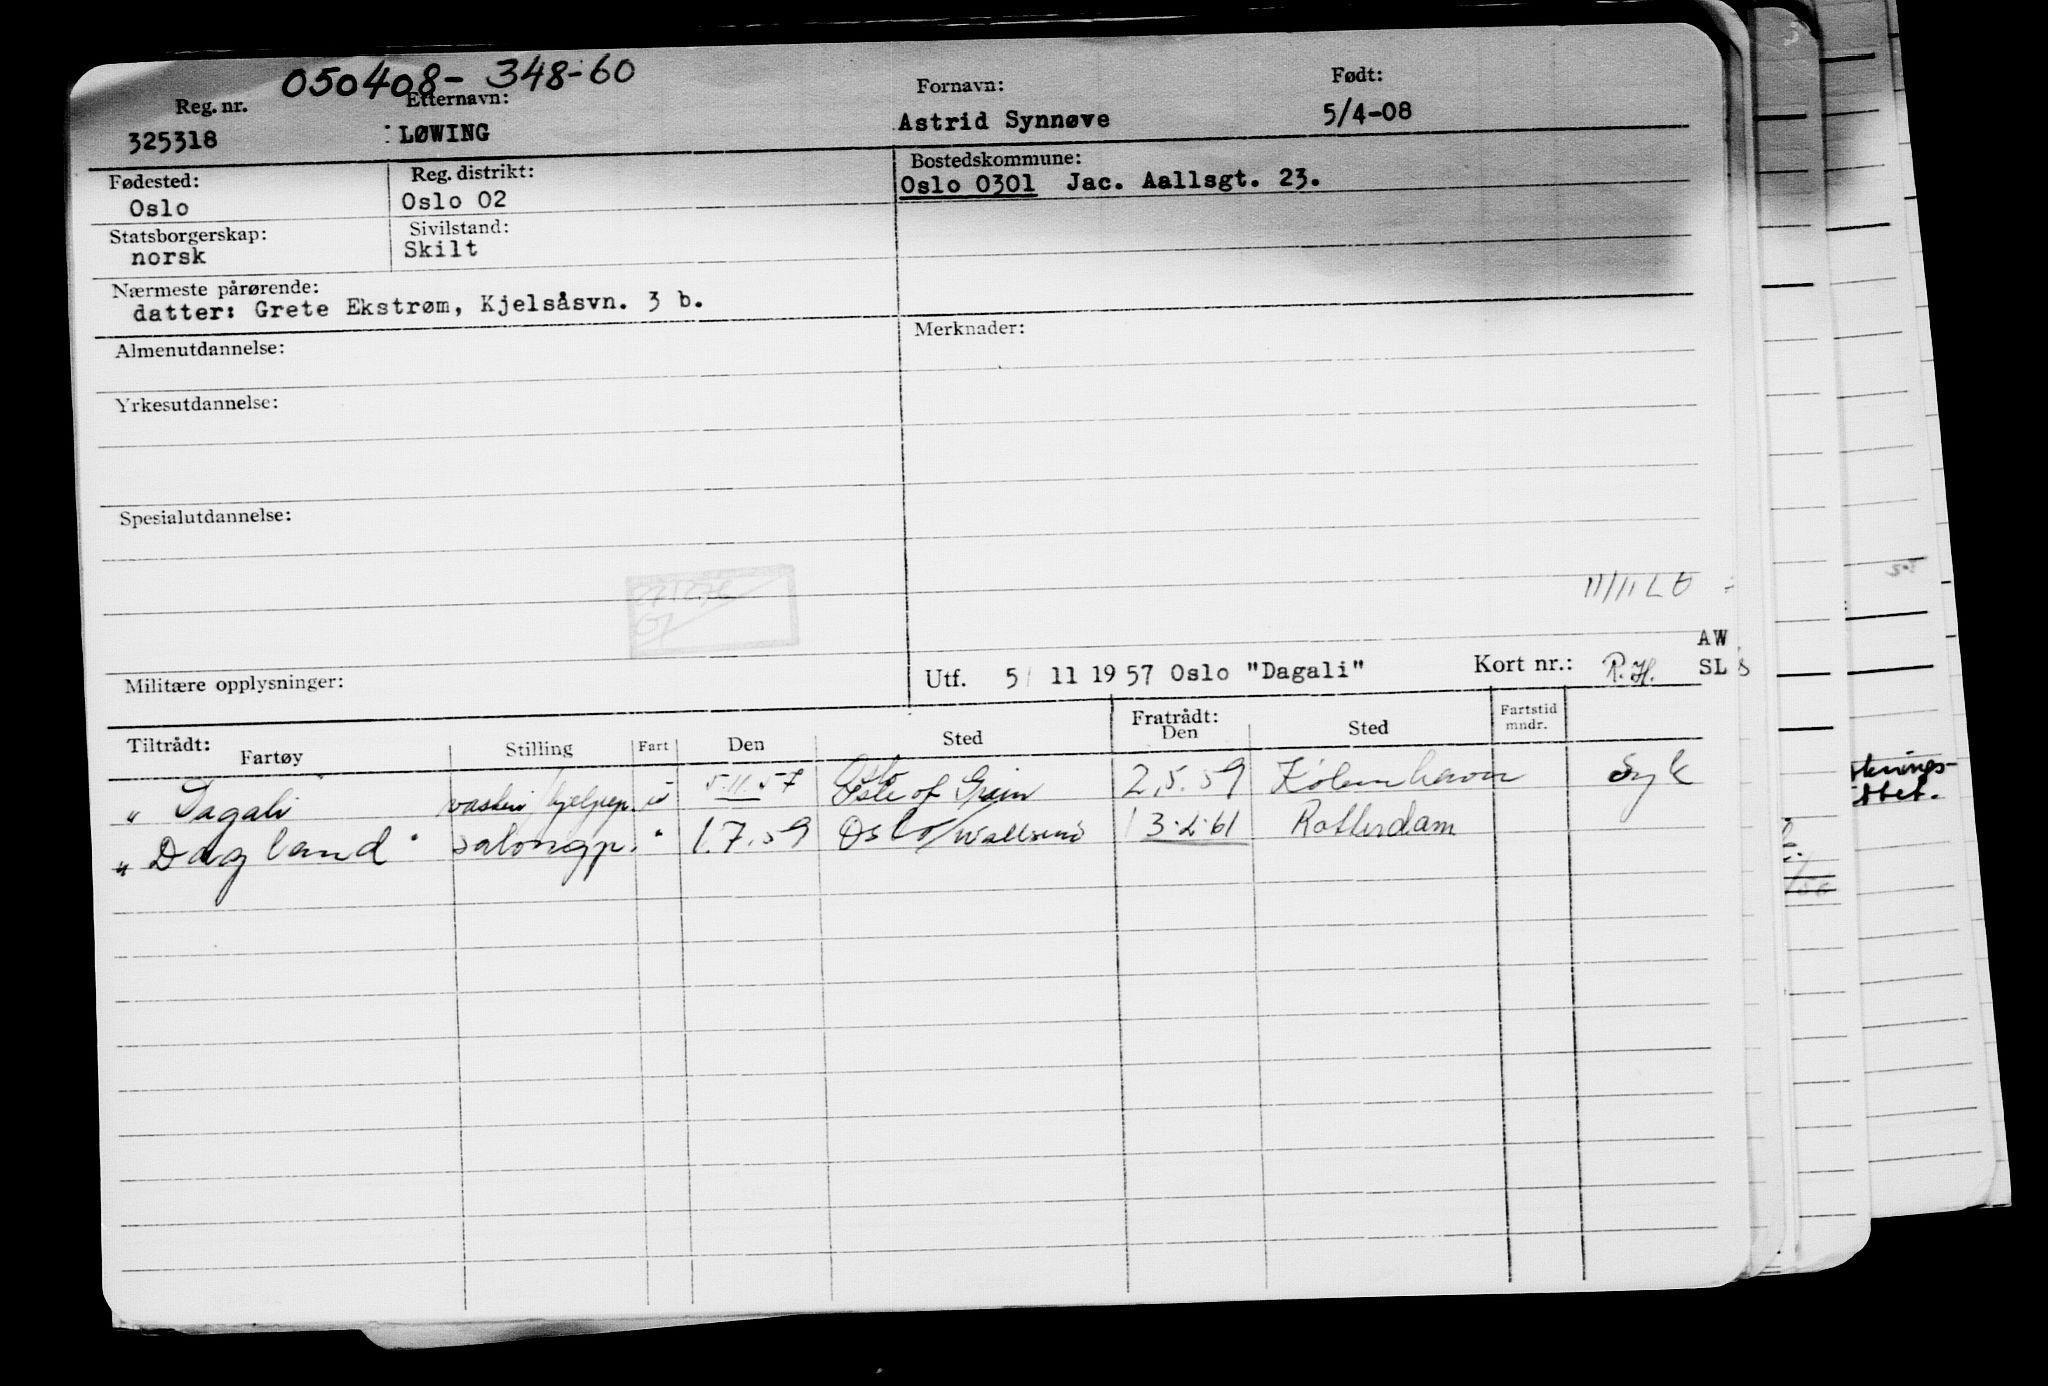 050408-348-60
Reg. nr. Etternavn: Fornavn: Født:
325318 LØWING Astrid Synnøve 5/4-08
Fødested: Reg. distrikt: Bostedskommune:
Oslo Oslo 02 Oslo 0301 Jac. Aallsgt. 23.
Statsborgerskap: Sivilstand:
norsk Skilt
Nærmeste pårørende:
datter: Grete Ekstrøm, Kjelsåsvn. 3 b.
Merknader:
Almenutdannelse:
Yrkesutdannelse:
Spesialutdannelse:
11/11 L
AW
Militære opplysninger: Utf. 5/ 11 1957 Oslo "Dagali" Kort nr.: R.H. SL
Tiltrådt: Fratrådt: Fartstid mndr.
Fartøy Stilling Fart Den Sted Den Sted
" Dagali vaskeri/hjelpep. u 5.11.57 Oslo Isle of Grain 2.5.59 København Syk
" Dagland " salongp. " 1.7.59 Oslo/Wallsend 13.2.61 Rotterdam